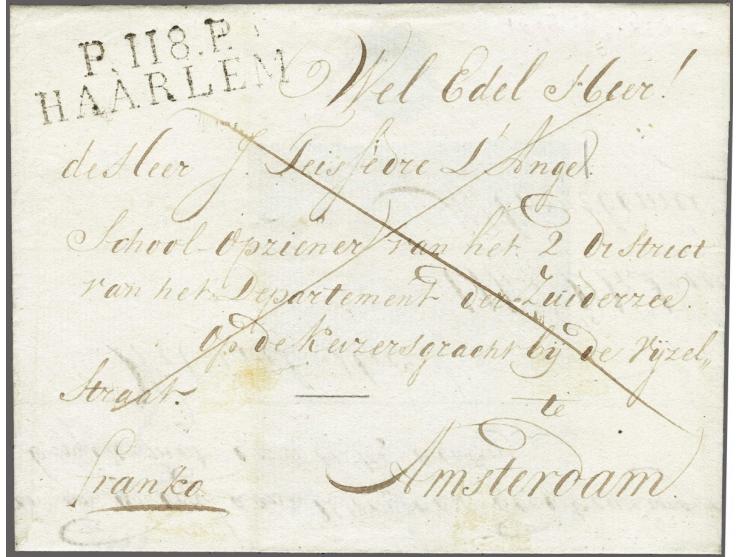 P.118.P.
HAARLEM
Wel Edel Heer!
de Heer J. Teissedre L'Ange.
School-Opziener van het 2 District
van het Departement der Zuiderzee.
Op de Keizersgracht bij de Vijzel„
straat.
te
Franko
Amsterdam